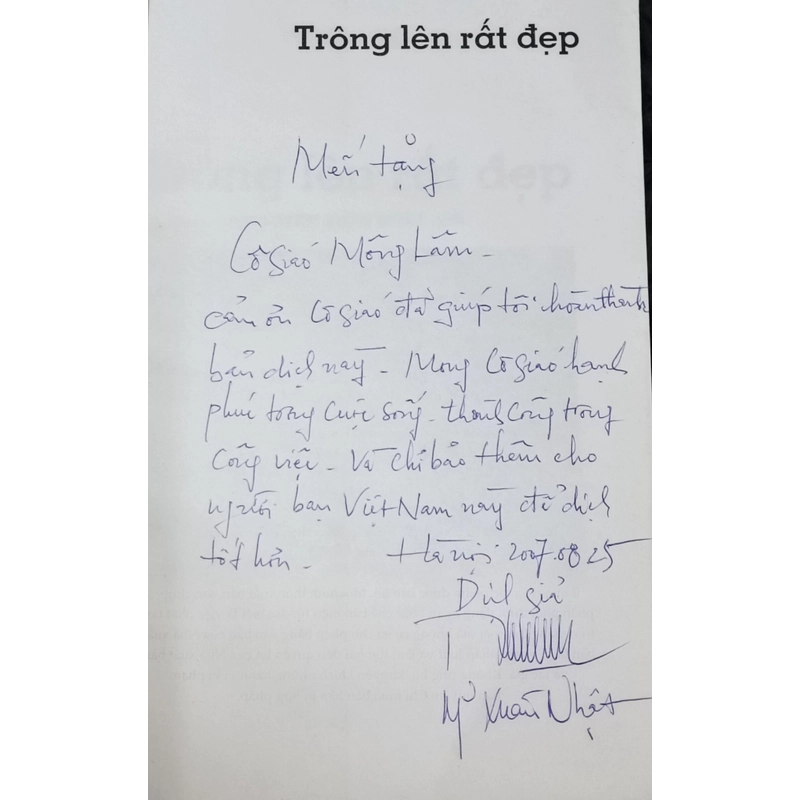 Trông lên rất đẹp
Mến tặng
Cô giáo Mông Lâm -
cảm ơn Cô giáo đã giúp tôi hoàn thành
bản dịch này - Mong Cô giáo hạnh
phúc trong cuộc sống - thành công trong
công việc - Và chỉ bảo thêm cho
người bạn Việt Nam này để dịch
tốt hơn - Hà nội 2007.08.25
Dịch giả
Xuân Nhật